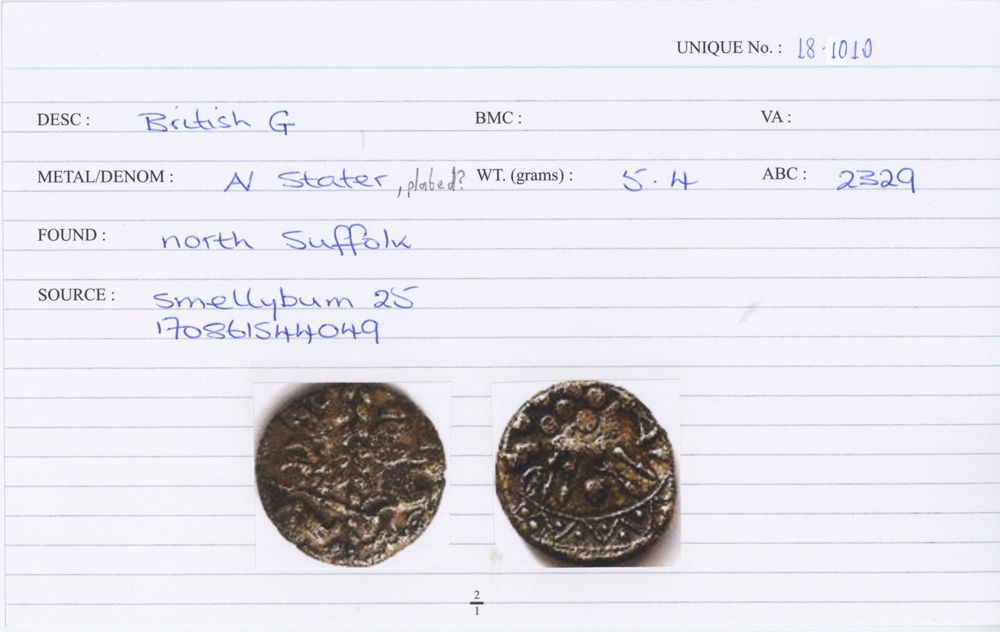 UNIQUE No. : 18.1010
DESC : British G BMC : VA :
METAL/DENOM : AV Stater, plated? WT. (grams) : 5.4 ABC : 2329
FOUND : north Suffolk
SOURCE : smellybum 25
170861544049
2
1